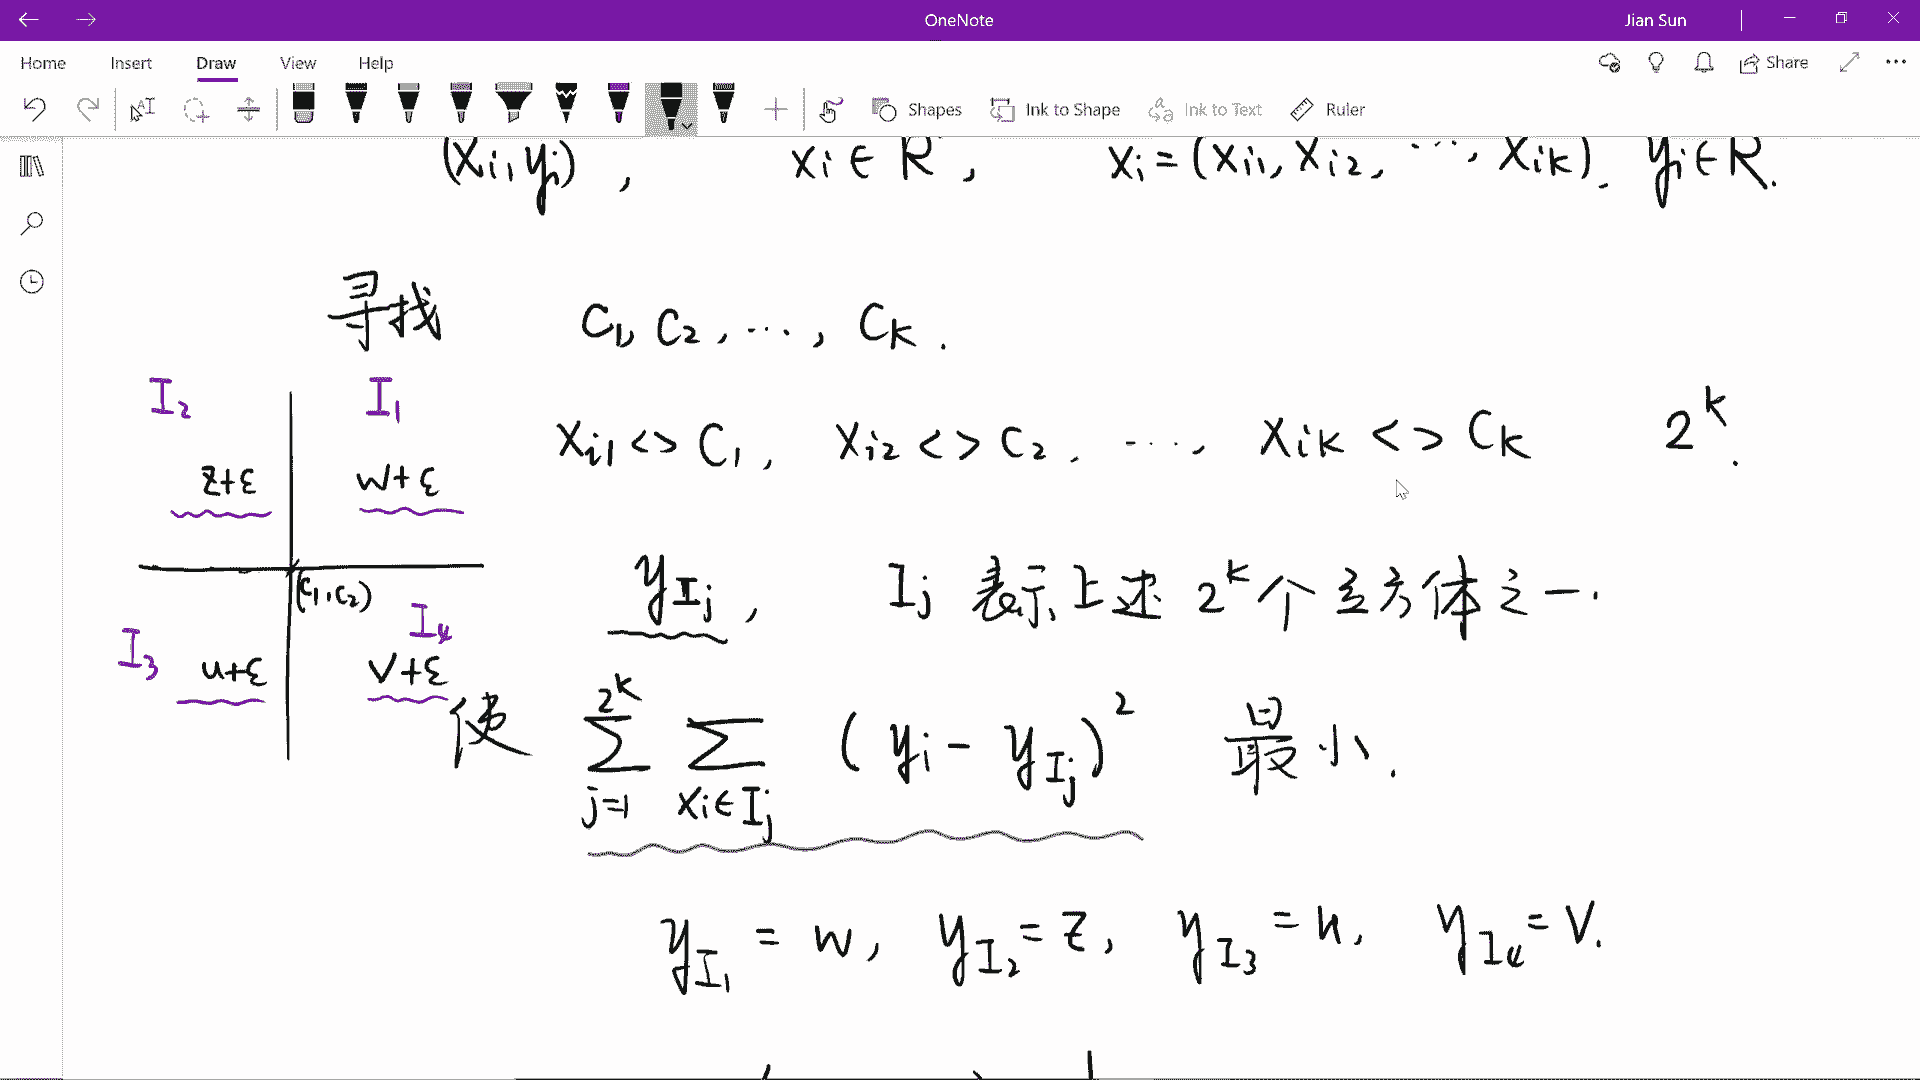 OneNote
Jian Sun
Home Insert Draw View Help
Share
Shapes Ink to Shape Ink to Text Ruler
(xi, yi), xi ∈ R , xi = (xi1, xi2, ···, xik). yi ∈ R.
寻找 C1, C2, ···, Ck.
I2 I1
xi1 <> C1, xi2 <> C2, ···, xik <> Ck 2^k.
z+ε w+ε
(C1, C2)
yIj, Ij 表示上述 2^k 个立方体之一.
I3 I4
u+ε v+ε
使 ∑_{j=1}^{2^k} ∑_{xi∈Ij} (yi - yIj)^2 最小.
yI1 = w, yI2 = z, yI3 = u, yI4 = v.